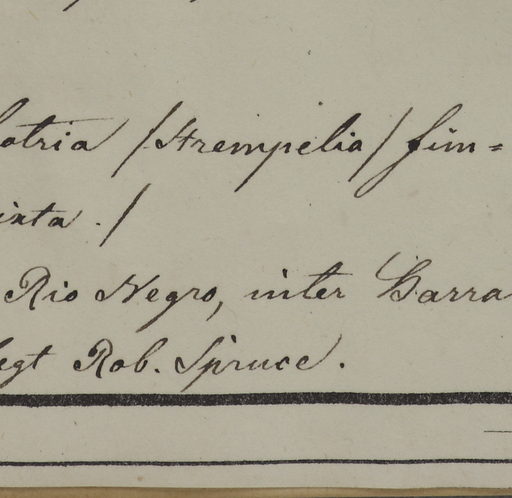 otria /Strempelia/ fim=
ixta ./
Rio Negro, inter Barra
legt Rob. Spruce.